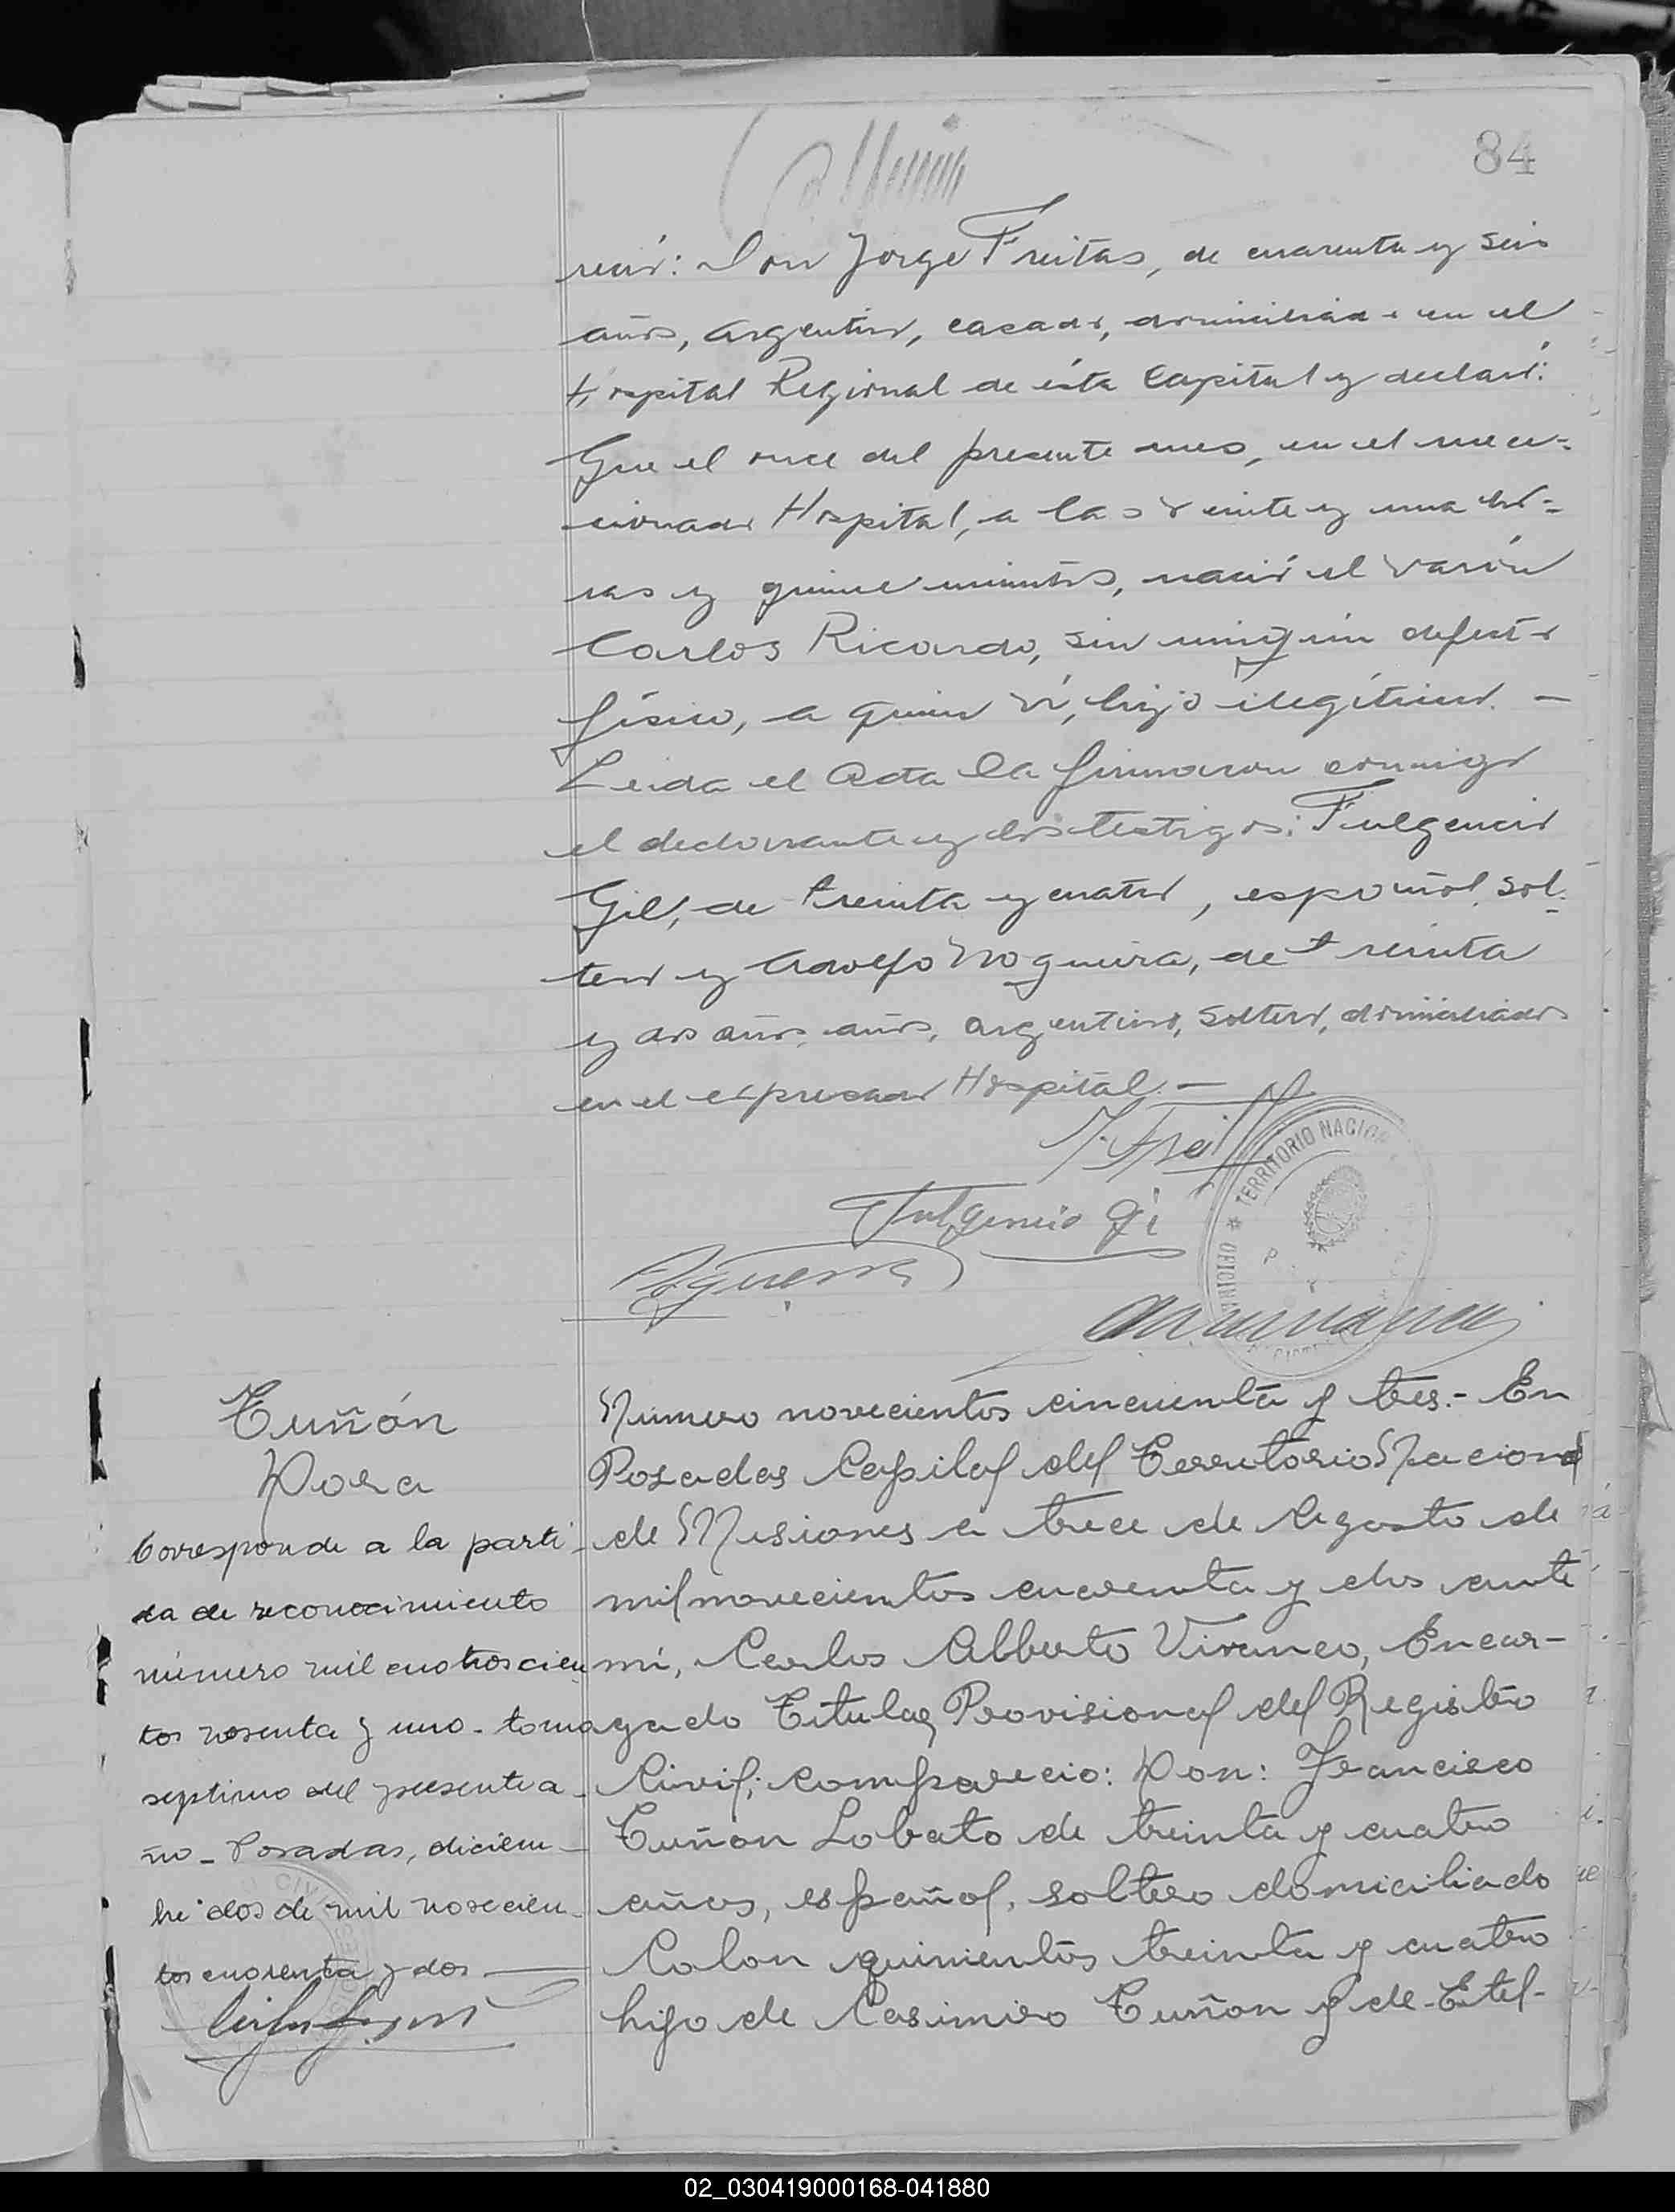 84
reció: Don Jorge Freitas, de cuarenta y seis
años, argentino, casado, domiciliado en el
Hospital Regional de ésta Capital y declaró:
Que el once del presente mes, en el men-
cionado Hospital, a las veinte y una ho-
ras y quince minutos, nació el varón
Carlos Ricardo, sin ningún defecto
físico, a quien ví, hijo ilegítimo. —
Leida el Acta la firmaron conmigo
el declarante y los testigos: Fulgencio
Gil, de treinta y cuatro, español, sol-
tero y Adolfo Nogueira, de treinta
y dos años, años, argentino, soltero, domiciliados
en el expresado Hospital. —
Fulgencio Gi
TERRITORIO NACIO
OFICINA
Tuñón
Dora
Corresponde a la parti-
da de reconocimiento
número mil cuatroscien
tos sesenta y uno - tomo
septimo del presente a-
ño - Posadas, diciem-
bre dos de mil novecien-
tos cuarenta y dos —
Número novecientos cincuenta y tres.- En
Posadas Capital del Territorio Nacional
de Misiones a trece de Agosto de
mil novecientos cuarenta y dos ante
mí, Carlos Alberto Vivanco, Encar-
gado Titular Provisional del Registro
Civil; comparecio: Don: Francisco
Tuñon Lobato de treinta y cuatro
años, español, soltero domiciliado
Colon quinientos treinta y cuatro
hijo de Casimiro Tuñon y de Estel-
02_030419000168-041880